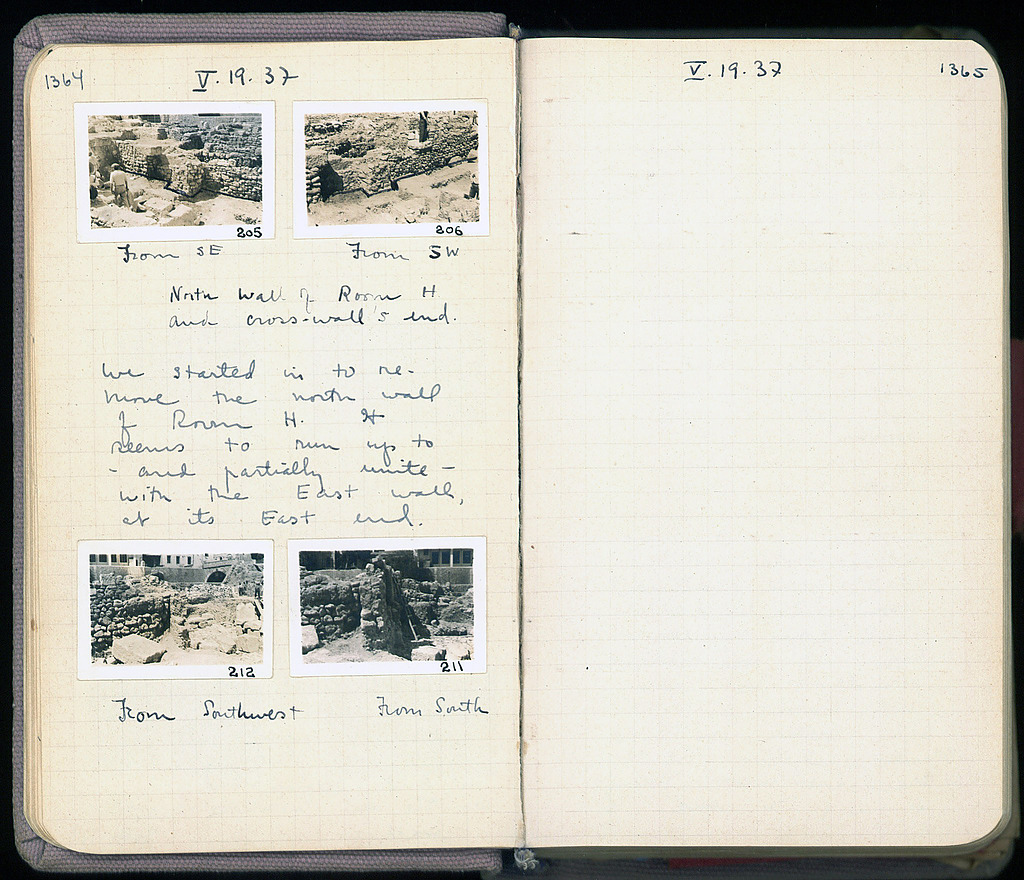 1364
V. 19. 37
205
206
From SE
From SW
North wall of Room H
and cross-wall's end.
We started in to re-
move the north wall
of Room H. It
seems to run up to
- and partially unite -
with the East wall,
at its East end.
212
211
From Southwest
From South
V. 19. 37
1365